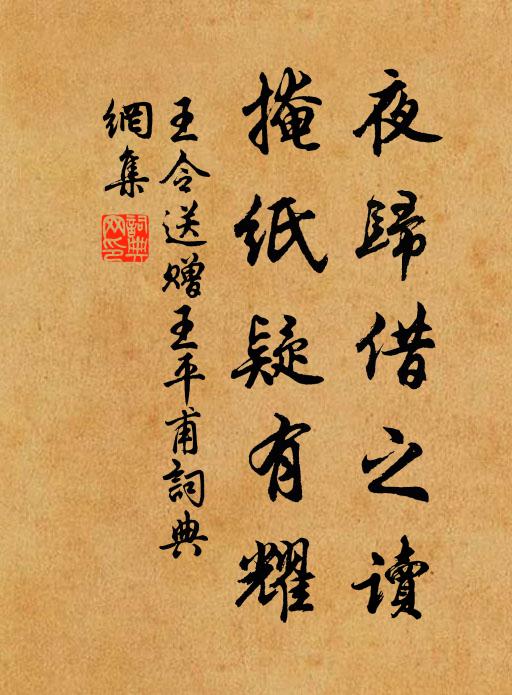 夜歸借之讀
掩紙疑有耀
王令送贈王平甫詞典
網集
詞典
网印